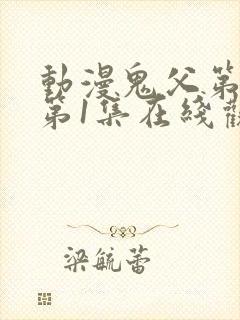 動漫鬼父第
第1集在綫
梁毓蕾